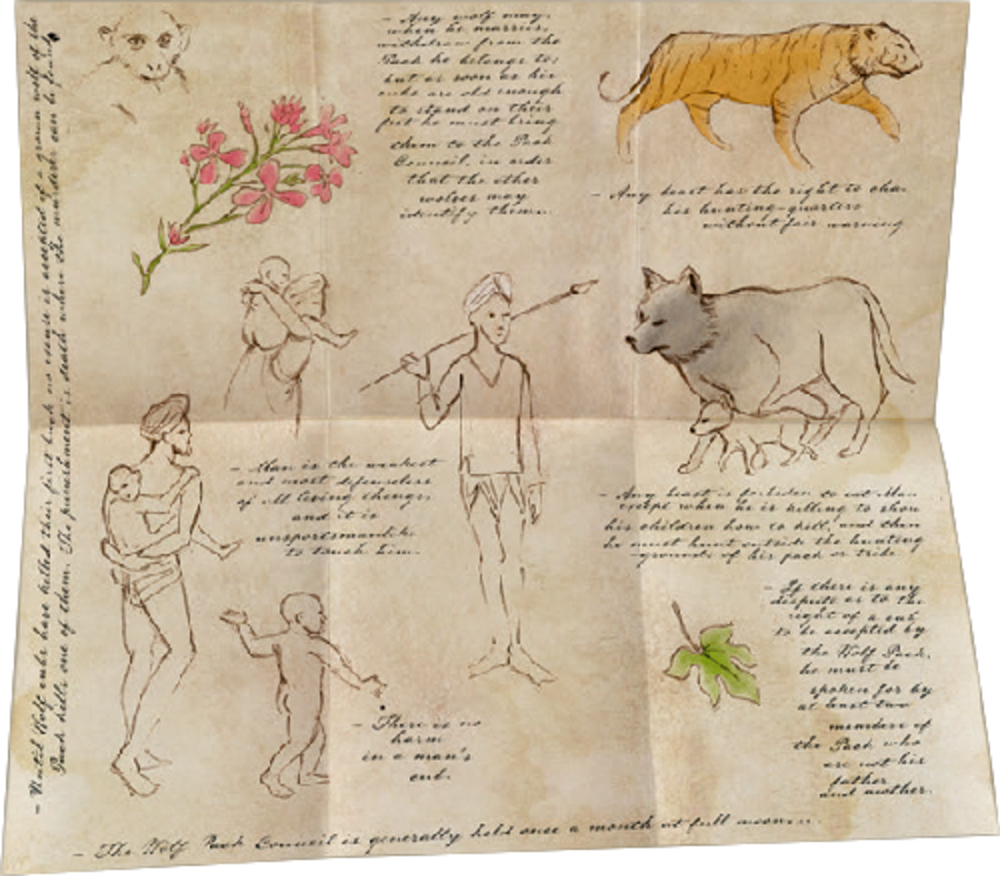 - Until Wolf cubs have killed their first buck no excuse is accepted if a grown wolf of the
Pack kills one of them. The punishment is death where the murderer can be found.
- Any wolf may,
when he marries,
withdraw from the
Pack he belongs to;
but as soon as his
cubs are old enough
to stand on their
feet he must bring
them to the Pack
Council, in order
that the other
wolves may
identify them.
- Any beast has the right to
his hunting-quarters
without fair warning
- Man is the weakest
and most defenseless
of all living things,
and it is
unsportsmanlike
to touch him.
- Any beast is forbidden to eat Man
except when he is killing to show
his children how to kill, and then
he must hunt outside the hunting
-grounds of his pack or tribe.
- If there is any
dispute as to the
right of a cub
to be accepted by
the Wolf Pack,
he must be
spoken for by
at least two
members of
the Pack who
are not his
father
and mother.
- There is no
harm
in a man's
cub.
- The Wolf Pack Council is generally held once a month at full moon